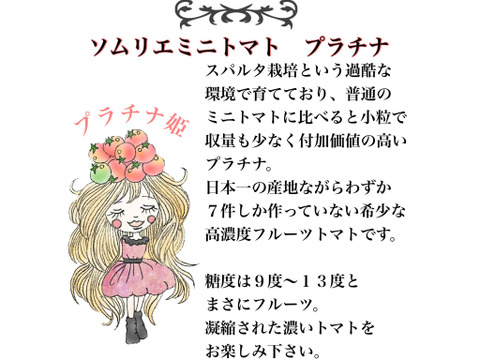 ソムリエミニトマト　プラチナ
スパルタ栽培という過酷な
環境で育てており、普通の
ミニトマトに比べると小粒で
収量も少なく付加価値の高い
プラチナ。
日本一の産地ながらわずか
７件しか作っていない希少な
高濃度フルーツトマトです。
プラチナ姫
糖度は９度～１３度と
まさにフルーツ。
凝縮された濃いトマトを
お楽しみ下さい。